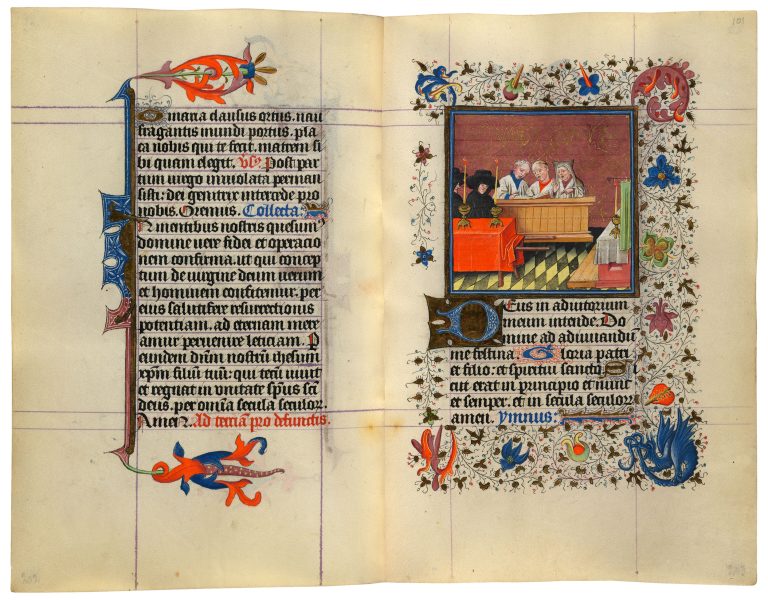 O maria clausus ortus. nau
fragantis mundi portus. pla
ca nobis qui te fecit. matrem si
bi quam elegit. Vsꝰ. Post par
tum uirgo inuiolata perman
sisti: dei genitrix intercede pro
nobis. Oremus. Collecta:
Mentibus nostris quesum̄
domine uere fidei et operacio
nem confirma. ut qui concep
tum de uirgine deum uerum
et hominem confitemur. per
eius salutifere resurrectionis
potentiam. ad eternam mere
amur peruenire leticiam. P
eundem dn̄m nostrū ihesum
xp̄m filiū tuū: qui tecū uiuit
et regnat in unitate sp̄us sc̄i
deus. per om̄ia secula seculoꝝ.
Amen. Ad terciā pro defunctis.
Deus in adiutorium
meum intende. Do
mine ad adiuuandū
me festina. Gloria patri
et filio: et spiritui sancto. Si
cut erat in principio et nunc
et semper. et in secula seculoꝝ
amen. ymnus: